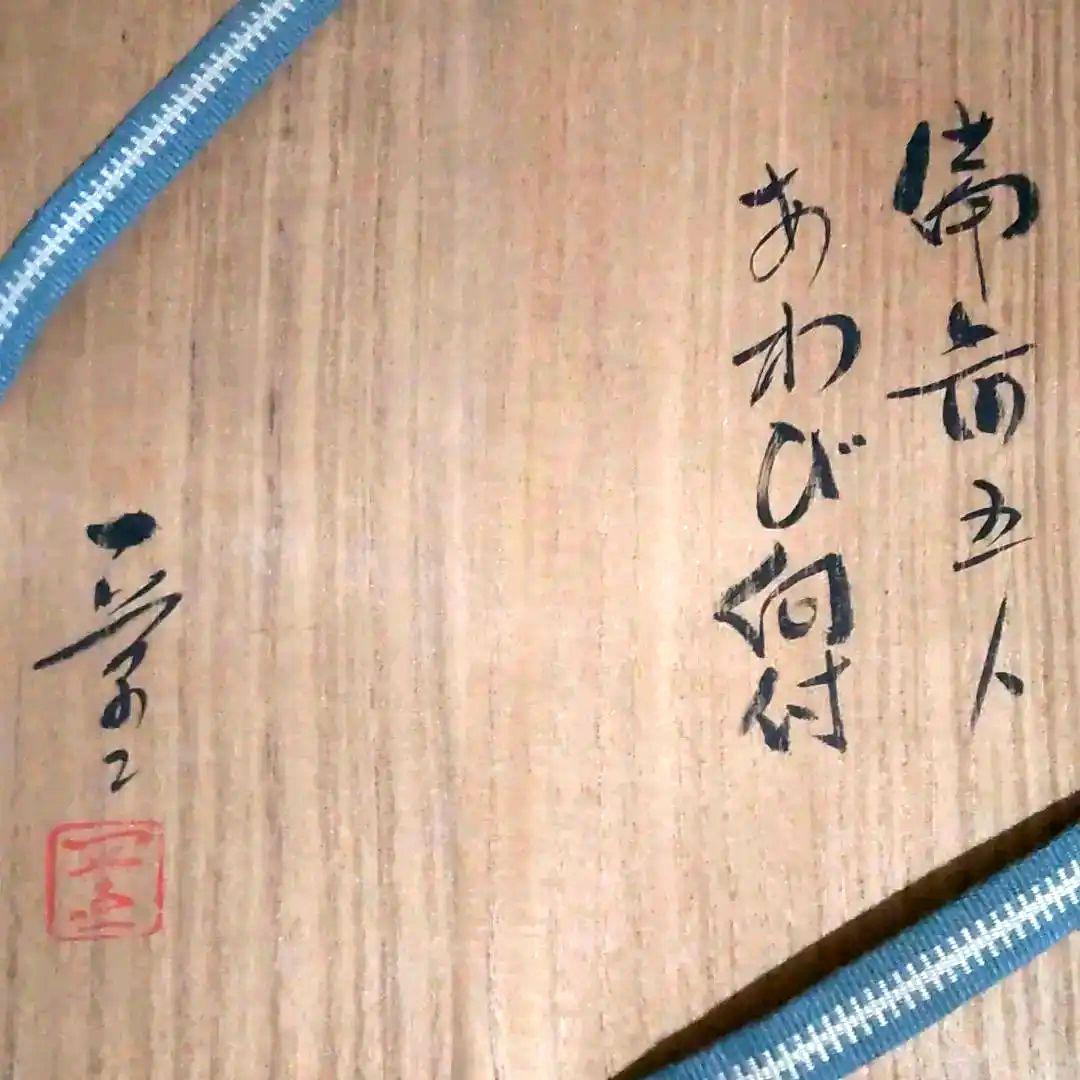 備前五人
あわび向付
一学